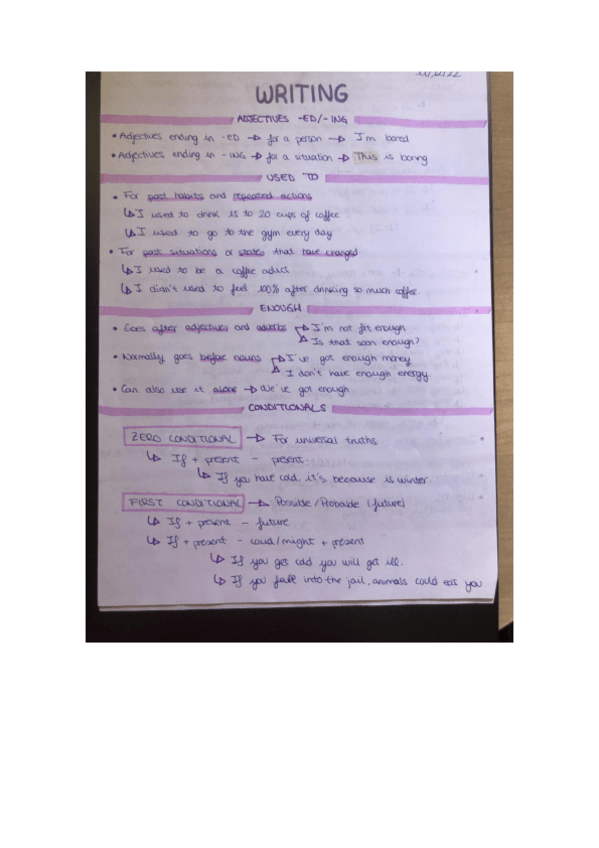 11/12/22
WRITING
ADJECTIVES -ED/-ING
• Adjectives ending in -ED → for a person → I'm bored
• Adjectives ending in -ING → for a situation → This is boring
USED TO
• For past habits and repeated actions
↳ I used to drink 15 to 20 cups of coffee
↳ I used to go to the gym every day
• For past situations or states that have changed
↳ I used to be a coffee adict
↳ I didn't used to feel 100% after drinking so much coffee
ENOUGH
• Goes after adjectives and adverbs → I'm not fit enough
→ Is that soon enough?
• Normally, goes before nouns → I've got enough money
→ I don't have enough energy
• Can also use it alone → We've got enough
CONDITIONALS
ZERO CONDITIONAL → For universal truths
↳ If + present - present
↳ If you have cold, it's because is winter.
FIRST CONDITIONAL → Possible/Probable (future)
↳ If + present - future
↳ If + present - coud/might + present
↳ If you get cold you will get ill.
↳ If you fall into the jail, animals could eat you